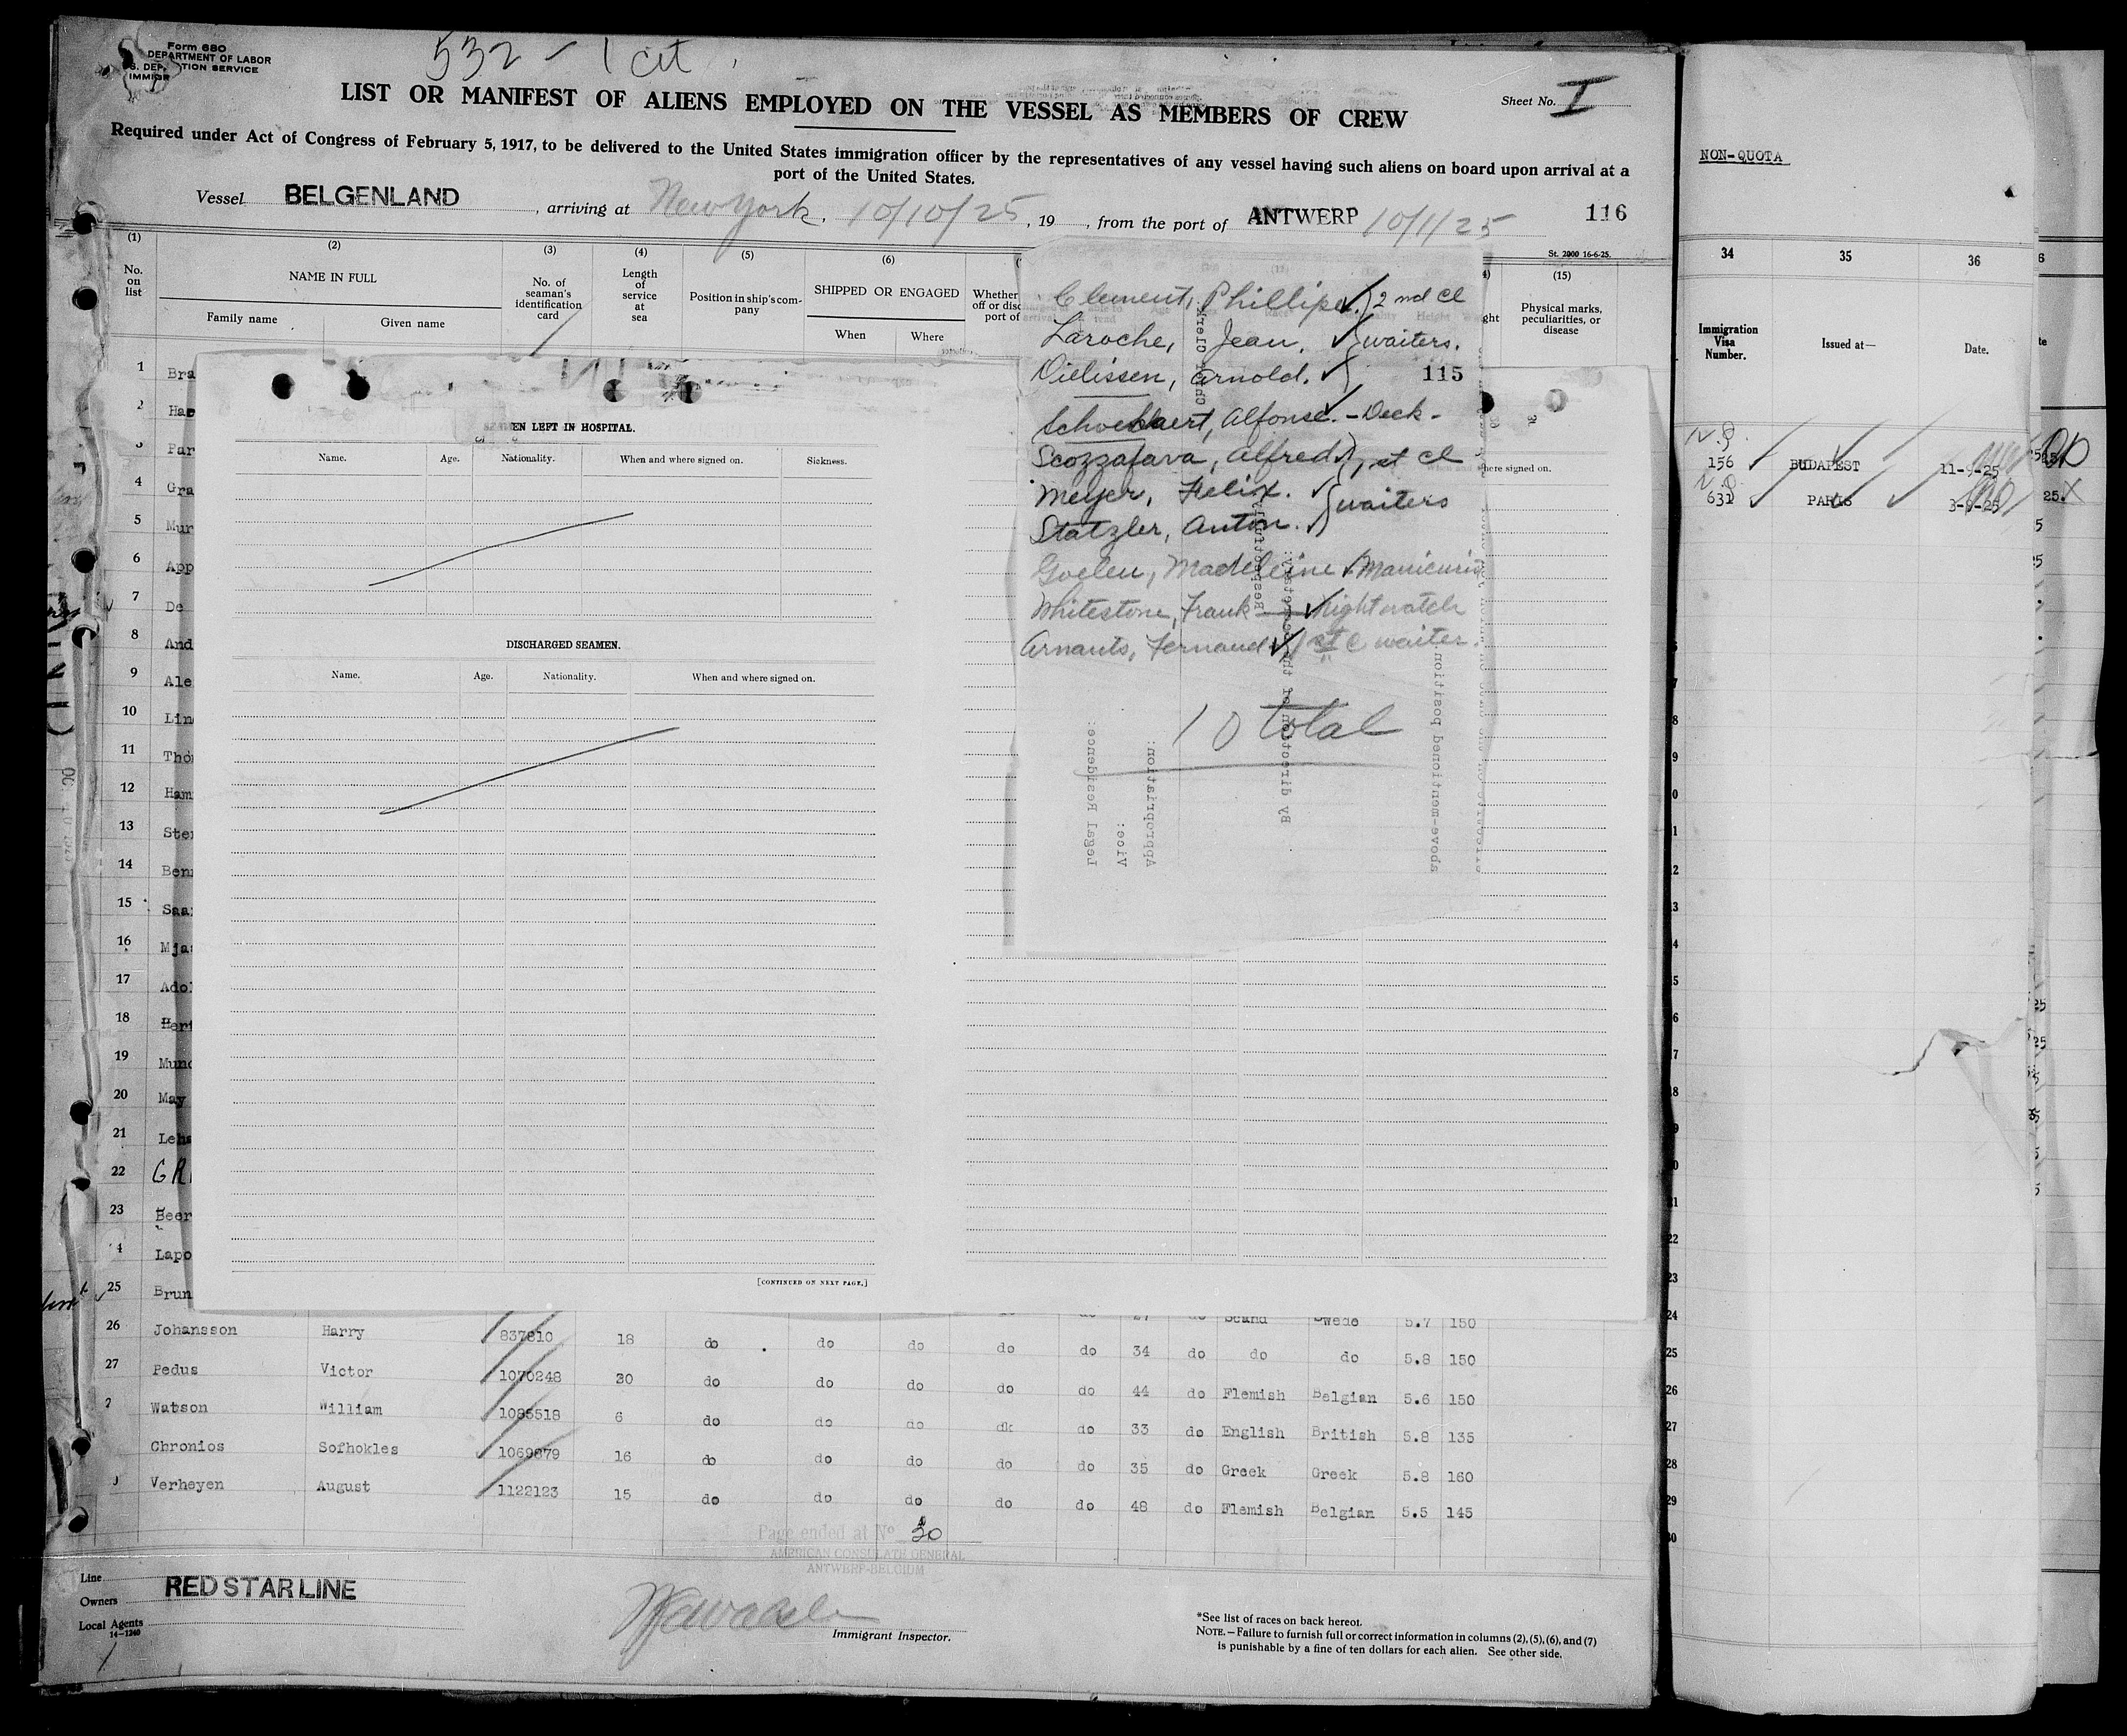 Form 680
DEPARTMENT OF LABOR
532 – 1 cit.
LIST OR MANIFEST OF ALIENS EMPLOYED ON THE VESSEL AS MEMBERS OF CREW
Sheet No. I
Required under Act of Congress of February 5, 1917, to be delivered to the United States immigration officer by the representatives of any vessel having such aliens on board upon arrival at a
port of the United States.
Vessel BELGENLAND, arriving at New York. 10/10/25, 19, from the port of ANTWERP 10/1/25
116
St. 2000 16-6-25.
(1) (2) (3) (4) (5) (6) (15)
No. on list
NAME IN FULL
Family name
Given name
No. of seaman's identification card
Length of service at sea
Position in ship's company
SHIPPED OR ENGAGED
When
Where
Whether
Physical marks, peculiarities, or disease
1 Bra
2 Ha
Par
4 Gra
5 Mur
6 App
7 De
8 And
9 Ale
10 Lin
11 Tho
12 Ham
13 Ste
14 Ben
15 Saa
16 Mja
17 Adol
18 Heri
19 Mund
20 May
21 Leh
22 GR
23 Beer
4 Lapo
25 Brun
EN LEFT IN HOSPITAL.
Name. Age. Nationality. When and where signed on. Sickness.
DISCHARGED SEAMEN.
Name. Age. Nationality. When and where signed on.
[CONTINUED ON NEXT PAGE.]
here signed on.
Clement, Phillipe. } 2nd cl
Laroche, Jean. } waiters.
Dielissen, Arnold. }
115
Schoeckaert, Alfonse. – Deck –
Scozzafava, Alfred } 1st cl
Meyer, Felix. } waiters
Statzler, Anton. }
Goelen, Madeleine Manicuris
Whitestone, Frank – Nightwatch
Arnauts, Fernand 1st C waiter.
10 total
Legal Residence:
Vice:
Appropriation:
By direction of the Secretary:
Respectfully,
Chief Clerk
above-mentioned position.
24 Scand Swede 5.7 150
26 Johansson Harry 837810 18 do do do do do 34 do do do 5.8 150
27 Pedus Victor 1070248 30 do do do do do 44 do Flemish Belgian 5.6 150
2 Watson William 1085518 6 do do do dk do 33 do English British 5.8 135
Chronios Sofhokles 1069879 16 do do do do do 35 do Greek Greek 5.8 160
Verheyen August 1122123 15 do do do do do 48 do Flemish Belgian 5.5 145
Page ended at No 30
AMERICAN CONSULATE GENERAL
ANTWERP-BELGIUM
Line
Owners RED STAR LINE
Local Agents
14-1240
Immigrant Inspector.
*See list of races on back hereof.
NOTE.—Failure to furnish full or correct information in columns (2), (5), (6), and (7)
is punishable by a fine of ten dollars for each alien. See other side.
NON-QUOTA
34 35 36
Immigration Visa Number. Issued at— Date.
156 BUDAPEST 11-9-25
631 PARIS 3-9-25